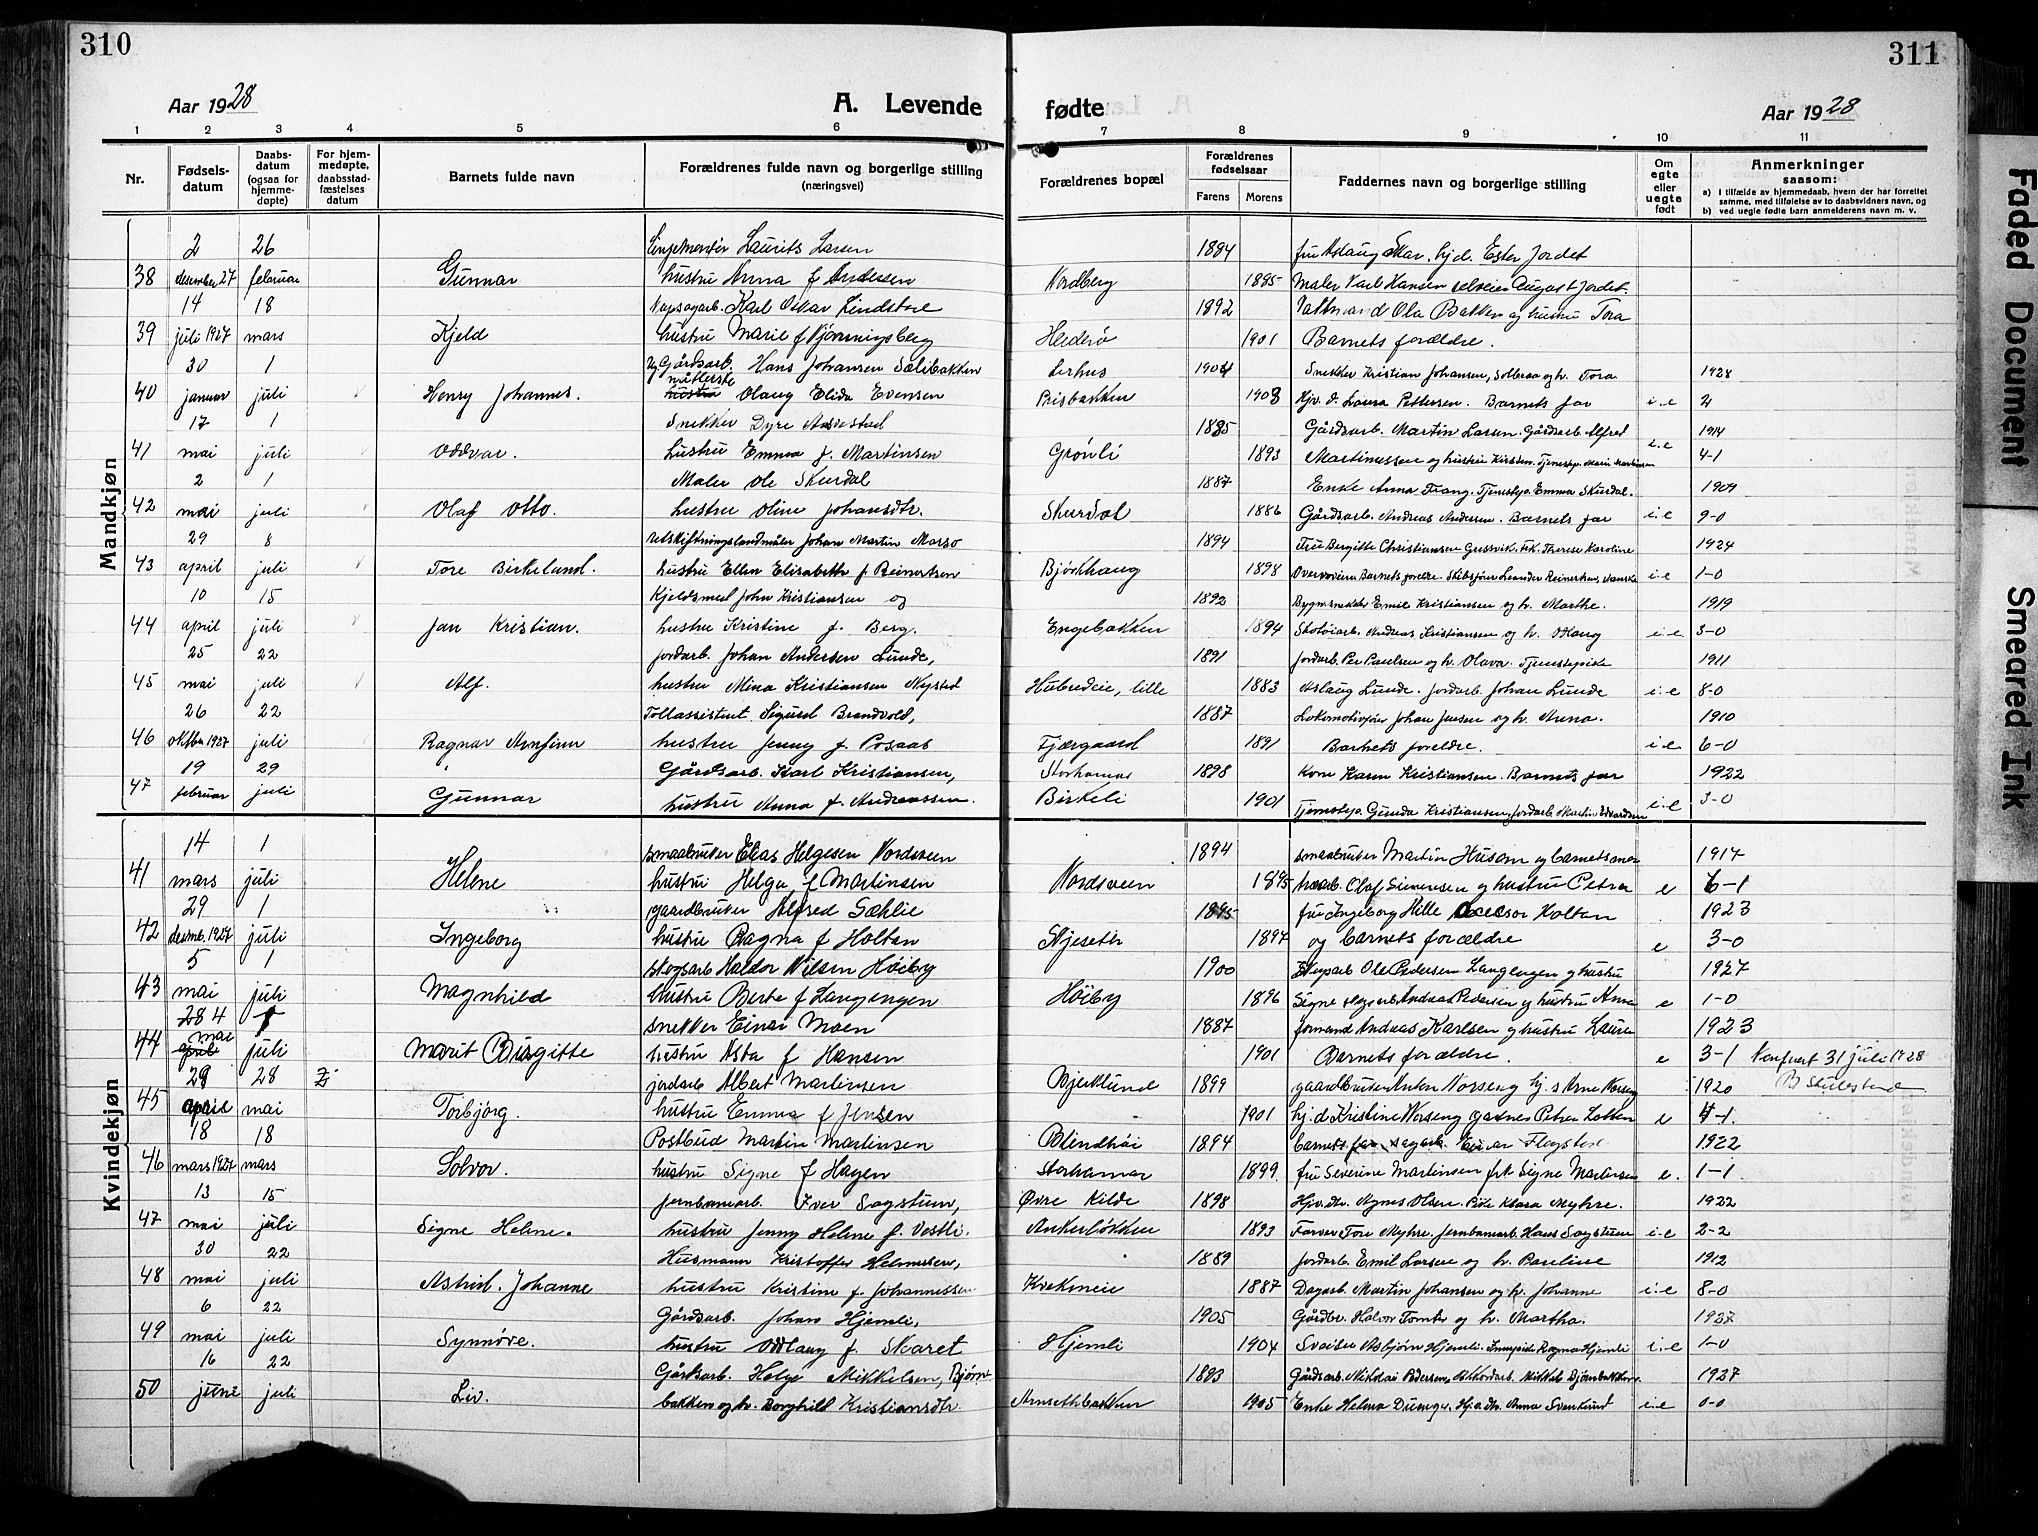 310
Aar 1928
A. Levende
1 2 3 4 5 6
Nr.
Fødselsdatum
Daabsdatum (ogsaa for hjemmedøpte)
For hjemmedøpte, daabsstadfæstelses datum
Barnets fulde navn
Forældrenes fulde navn og borgerlige stilling (næringsvei)
Mandkjøn
2 26 Laurits Larsen
38 desember 27 februar Gunnar hustru Anna f
14 18 Karl Oskar Lindstøe
39 juli 1927 mars Kjeld hustru Marie f
30 1 Gårdsarb. Hans Johansen Sælibakken
40 januar juli Henry Johannes. hustru Olaug Elida Evensen
17 1 Snekker Dyre
41 mai juli Oddvar. hustru Emma f. Martinsen
2 1 Maler Ole Skurdal
42 mai juli Olaf Otto. hustru Oline Johansdtr.
29 8 utskiftningslandmåler Johan Martin Marsø
43 april juli Tore Birkeland. hustru Ellen Elisabeth f Reinertsen
10 15 Kjeldsmed John Kristiansen og
44 april juli Jan Kristian. hustru Kristine f. Berg.
25 22 jordarb. Johan Andersen Lunde,
45 mai juli Alf. hustru Mina Kristiansen Nysted
26 22 Tollassistent Sigurd Brandvold,
46 oktbr 1927 juli Ragnar Arnfinn hustru Jenny f. Posaas
19 29 Gårdsarb. Karl Kristiansen,
47 februar juli Gunnar hustru Anna f. Andreassen.
Kvindekjøn
14 1 smaabruker Elias Helgesen Nordsveen
41 mars juli Helene hustru Helga f Martinsen
29 1 gaardbruker Alfred Sæhlie
42 desemb. 1927 juli Ingeborg hustru Ragna f Holtan
5 1 skogsarb Haldor Nilsen Høiby
43 mai juli Magnhild hustru Berte f Langengen
28 4 1 snekker Einar Moen
44 mai april juli Marit Birgitte hustru Asta f Hansen
29 28 jordarb Albert Martinsen
45 april mai Torbjørg. hustru Emma f Jensen
18 18 Postbud Martin Martinsen
46 mars 1927 mars Solvor. hustru Signe f Hagen
13 15 jernbanearb. Iver Sagstuen,
47 mai juli Signe Helene. hustru Jenny Helene f. Vestli.
30 22 Husmann Kristoffer Helmersen,
48 mai juli Astrid Johanne hustru Kristine f. Johannessen
6 22 Gårdsarb. Johan Hjemli,
49 mai juli Synnøve. hustru Oddlaug f. Skaret
16 22 Gårdsarb. Helge Mikkelsen, Bjørne-
50 juni juli Liv. bakken og h. Borghild Kristiansdtr.
311
fødte
Aar 1928
7 8 9 10 11
Forældrenes bopæl
Forældrenes fødselsaar
Farens Morens
Faddernes navn og borgerlige stilling
Om egte eller uegte født
Anmerkninger saasom:
a) I tilfælde av hjemmedaab, hvem der har forrettet samme, med tilføielse av to daabsvidners navn, og
b) ved uegte fødte barn anmelderens navn m. v.
1894 fru Aslaug Skar, hj.d. Ester Jordet
Nordberg 1895 Maler Karl Hansen selveier August Jordet.
1892 Vaktmand Ola Bakken og hustru Tora
1901 Barnets forældre.
Lerhus 1904 Snekker Kristian Johansen, Solbraa og h. Tora 1928
Prisbakken 1908 Hjv. d. Laura Pettersen. Barnets far i-e 2
1885 Gårdsarb. Martin Larsen. Gårdsarb. Alfred 1914
Grønli 1893 Martinussen og hustru Kirsten. i-e 4-1
1887 Enke Anna Trang. Tjenestep. Emma Skurdal. 1909
Skurdal 1886 Gårdsarb. Andreas Andersen. Barnets far i-e 9-0
1894 Fru Bergitte Christiansen Gresvik. Frk. Therese Karoline 1924
Bjørkhaug 1898 Barnets foreldre. i-e 1-0
1892 Bygn.snekker Emil Kristiansen og h. Marthe. 1919
Engebakken 1894 Skotøiarb. Andreas Kristiansen og h. Olaug i-e 3-0
1891 Jordarb. Per Paulsen og h. Olava. Tjenestepike 1911
Hubredeie, lille 1883 Aslaug Lunde. Jordarb. Johan Lunde i-e 8-0
1887 Lokomotivfør Johan Jensen og h. Anna. 1910
Fjærgaard 1891 Barnets foreldre. i-e 6-0
Storhamar 1898 Kone Karen Kristiansen. Barnets far 1922
Birkeli 1901 Tjenestep. Gunda Kristiansen. Jordarb. Martin Edvardsen i-e 3-0
1894 smaabruker Martin Husom og barnets mor 1917
Nordsveen 1895 Olaf Simensen og hustru Petra e 6-1
1895 fru Ingeborg Hille Holtan 1923
Stjeseth 1897 og barnets forældre e 3-0
1900 Skogsarb Ole Pedersen Langengen og hustru 1927
Høiby 1896 Signe skogsarb Andreas Pedersen og hustru Anna e 1-0
1887 formand Andreas Karlsen og hustru Laura 1923
1901 Barnets forældre. e 3-1 Konfirert 31 juli 1928
Bjerklund 1899 gaardbruker Anton Norseng hj. s Arne Norseng 1920
1901 hj. d Kristine Norseng e 4-1.
Blindhøi 1894 barnets far sagarb. Einar Flagstad 1922
Storhamar 1899 fru Severine Martinsen frk Signe Martinsen e. 1-1
Øvre Kilde 1898 Hjv.dtr. Agnes Olsen. Pike Klara Myhre. 1922
Ankerløkken 1893 Farver Tore Myhre. Jernbanearb. Hans Sagstuen i-e 2-2
1889 Jordarb. Emil Larsen og h. Pauline 1912
Kvekneie 1887 Dagarb. Martin Johansen og h. Johanne i-e 8-0
1905 Gårdbr. Halvor Tomter og h. Martha. 1927
Hjemli 1904 Sveiser Asbjørn Hjemli. Ragna Hjemli i-e 1-0
1883 Gårdsarb. Nikolai Pedersen, 1927
Arnsethbakken 1905 Enke Helena i-e 0-0
Faded Document
Smeared Ink